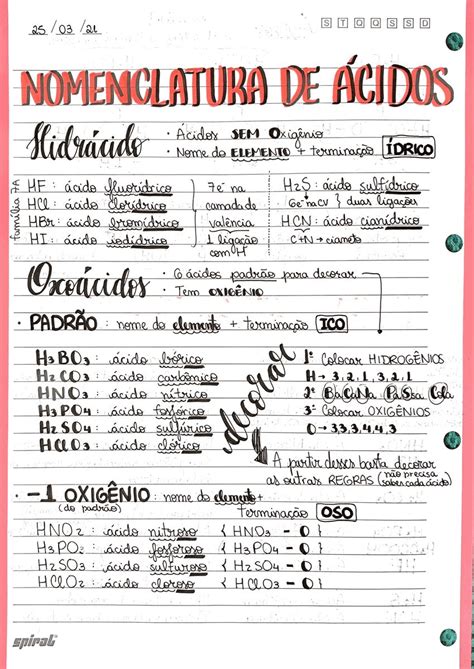 25/03/21
S T Q Q S S D
NOMENCLATURA DE ÁCIDOS
Hidrácido
· Ácidos SEM Oxigênio
· Nome do ELEMENTO + terminação ÍDRICO
família 7A
HF: ácido fluorídrico
HCl: ácido clorídrico
HBr: ácido bromídrico
HI: ácido iodídrico
7e⁻ na
camada de
valência
1 ligação
com H
H2S: ácido sulfídrico
6e⁻ na CV } duas ligações
HCN: ácido cianídrico
C+N → cianeto
Oxoácidos
· 6 ácidos padrão para decorar
· Tem OXIGÊNIO
· PADRÃO: nome do elemento + terminação ICO
H3BO3: ácido bórico
H2CO3: ácido carbônico
HNO3: ácido nítrico
H3PO4: ácido fosfórico
H2SO4: ácido sulfúrico
HClO3: ácido clórico
decorar
1º Colocar HIDROGÊNIOS
H → 3, 2, 1, 3, 2, 1
2º BáCaNa PaSsa Cola
3º Colocar OXIGÊNIOS
O → 3,3,3,4,4,3
A partir desses basta decorar
as outras REGRAS (não precisa
saber cada ácido)
· -1 OXIGÊNIO: nome do elemento +
(do padrão)
terminação OSO
HNO2: ácido nitroso { HNO3 - O }
H3PO3: ácido fosforoso { H3PO4 - O }
H2SO3: ácido sulfuroso { H2SO4 - O }
HClO2: ácido cloroso { HClO3 - O }
spiral